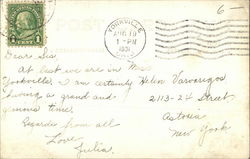 6-
YORKVILLE
AUG 19
1 - PM
1931
1 CENT 1
Dear Sis
At last we are in
Yorkville. I am certainly
having a grand and
glorious time.
Regards from all
Love
Julia
Miss
Helen
2113-24 Street
Astoria
New York